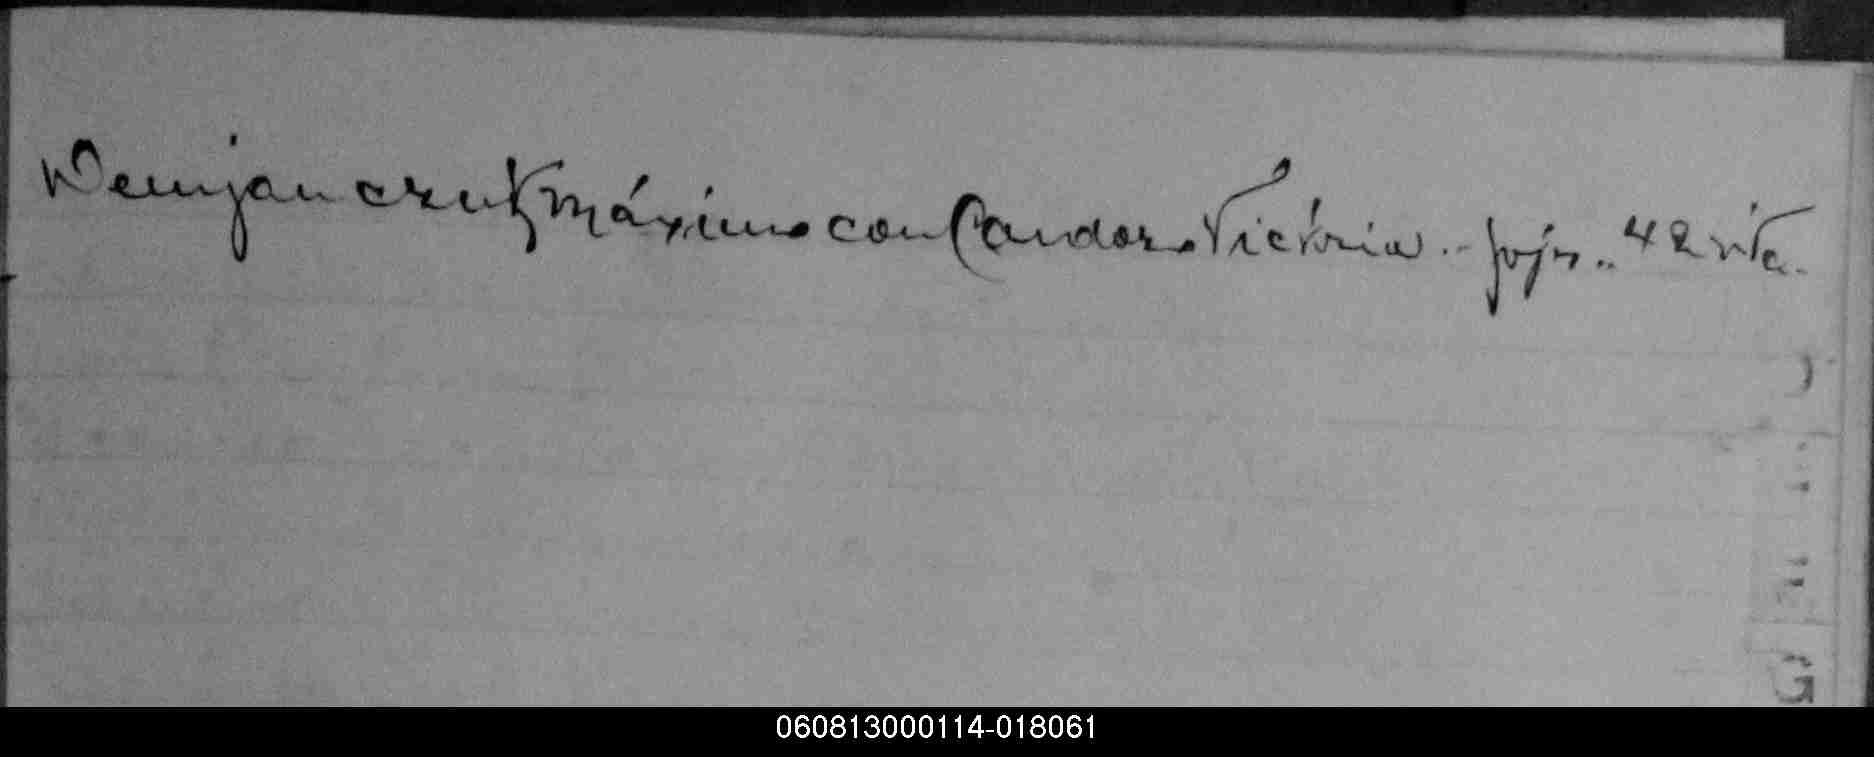 Demjanczuk Máximo con Candor Victoria .- foja .. 42 vta.
060813000114-018061